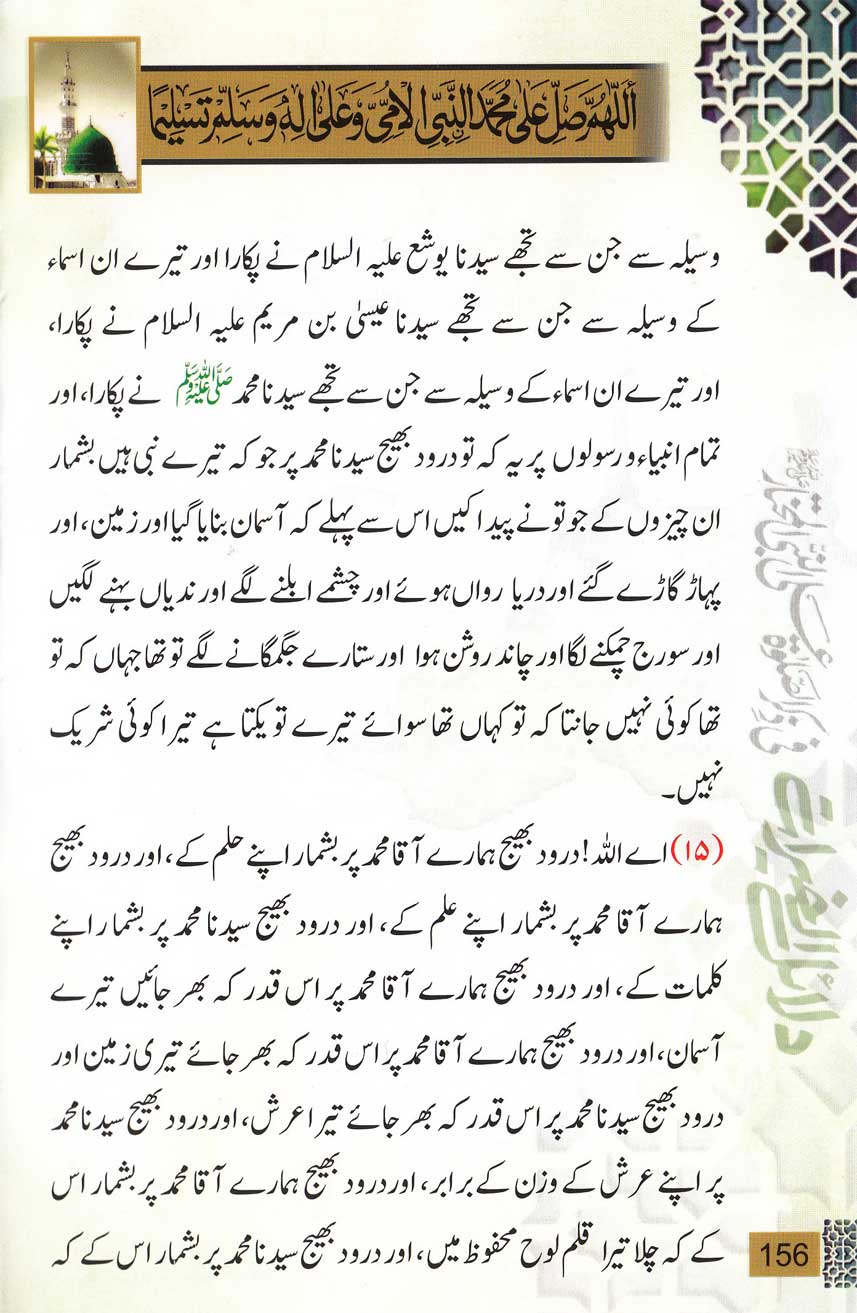 أَللّٰهُمَّ صَلِّ عَلٰى مُحَمَّدِ النَّبِيِّ الْأُمِّيِّ وَعَلٰى اٰلِهٖ وَسَلِّمْ تَسْلِيْمًا
وسیلہ سے جن سے تجھے سیدنا یوشع علیہ السلام نے پکارا اور تیرے ان اسماء
کے وسیلہ سے جن سے تجھے سیدنا عیسیٰ بن مریم علیہ السلام نے پکارا،
اور تیرے ان اسماء کے وسیلہ سے جن سے تجھے سیدنا محمد ﷺ نے پکارا، اور
تمام انبیاء و رسولوں پر یہ کہ تو درود بھیج سیدنا محمد پر جو کہ تیرے نبی ہیں بشمار
ان چیزوں کے جو تو نے پیدا کیں اس سے پہلے کہ آسمان بنایا گیا اور زمین، اور
پہاڑ گاڑے گئے اور دریا رواں ہوئے اور چشمے ابلنے لگے اور ندیاں بہنے لگیں
اور سورج چمکنے لگا اور چاند روشن ہوا اور ستارے جگمگانے لگے تو تھا جہاں کہ تو
تھا کوئی نہیں جانتا کہ تو کہاں تھا سوائے تیرے تو یکتا ہے تیرا کوئی شریک
نہیں۔
(۱۵) اے اللہ! درود بھیج ہمارے آقا محمد پر بشمار اپنے حلم کے، اور درود بھیج
ہمارے آقا محمد پر بشمار اپنے علم کے، اور درود بھیج سیدنا محمد پر بشمار اپنے
کلمات کے، اور درود بھیج ہمارے آقا محمد پر اس قدر کہ بھر جائیں تیرے
آسمان، اور درود بھیج ہمارے آقا محمد پر اس قدر کہ بھر جائے تیری زمین اور
درود بھیج سیدنا محمد پر اس قدر کہ بھر جائے تیرا عرش، اور درود بھیج سیدنا محمد
پر اپنے عرش کے وزن کے برابر، اور درود بھیج ہمارے آقا محمد پر بشمار اس
کے کہ چلا تیرا قلم لوح محفوظ میں، اور درود بھیج سیدنا محمد پر بشمار اس کے کہ
دلائل الخیرات
156